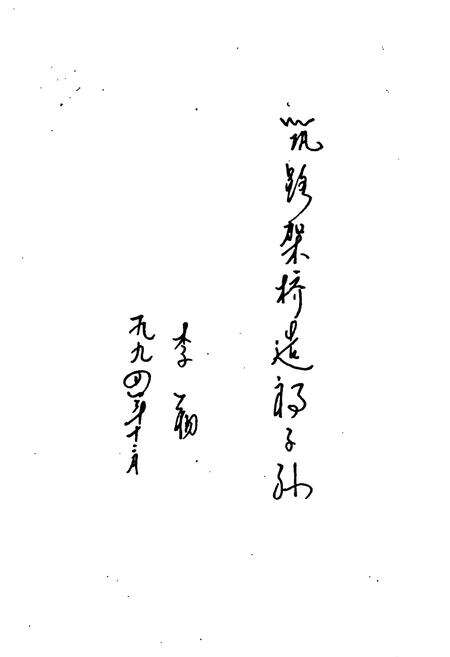 筑路架桥造福子孙
李
一九九四年十二月